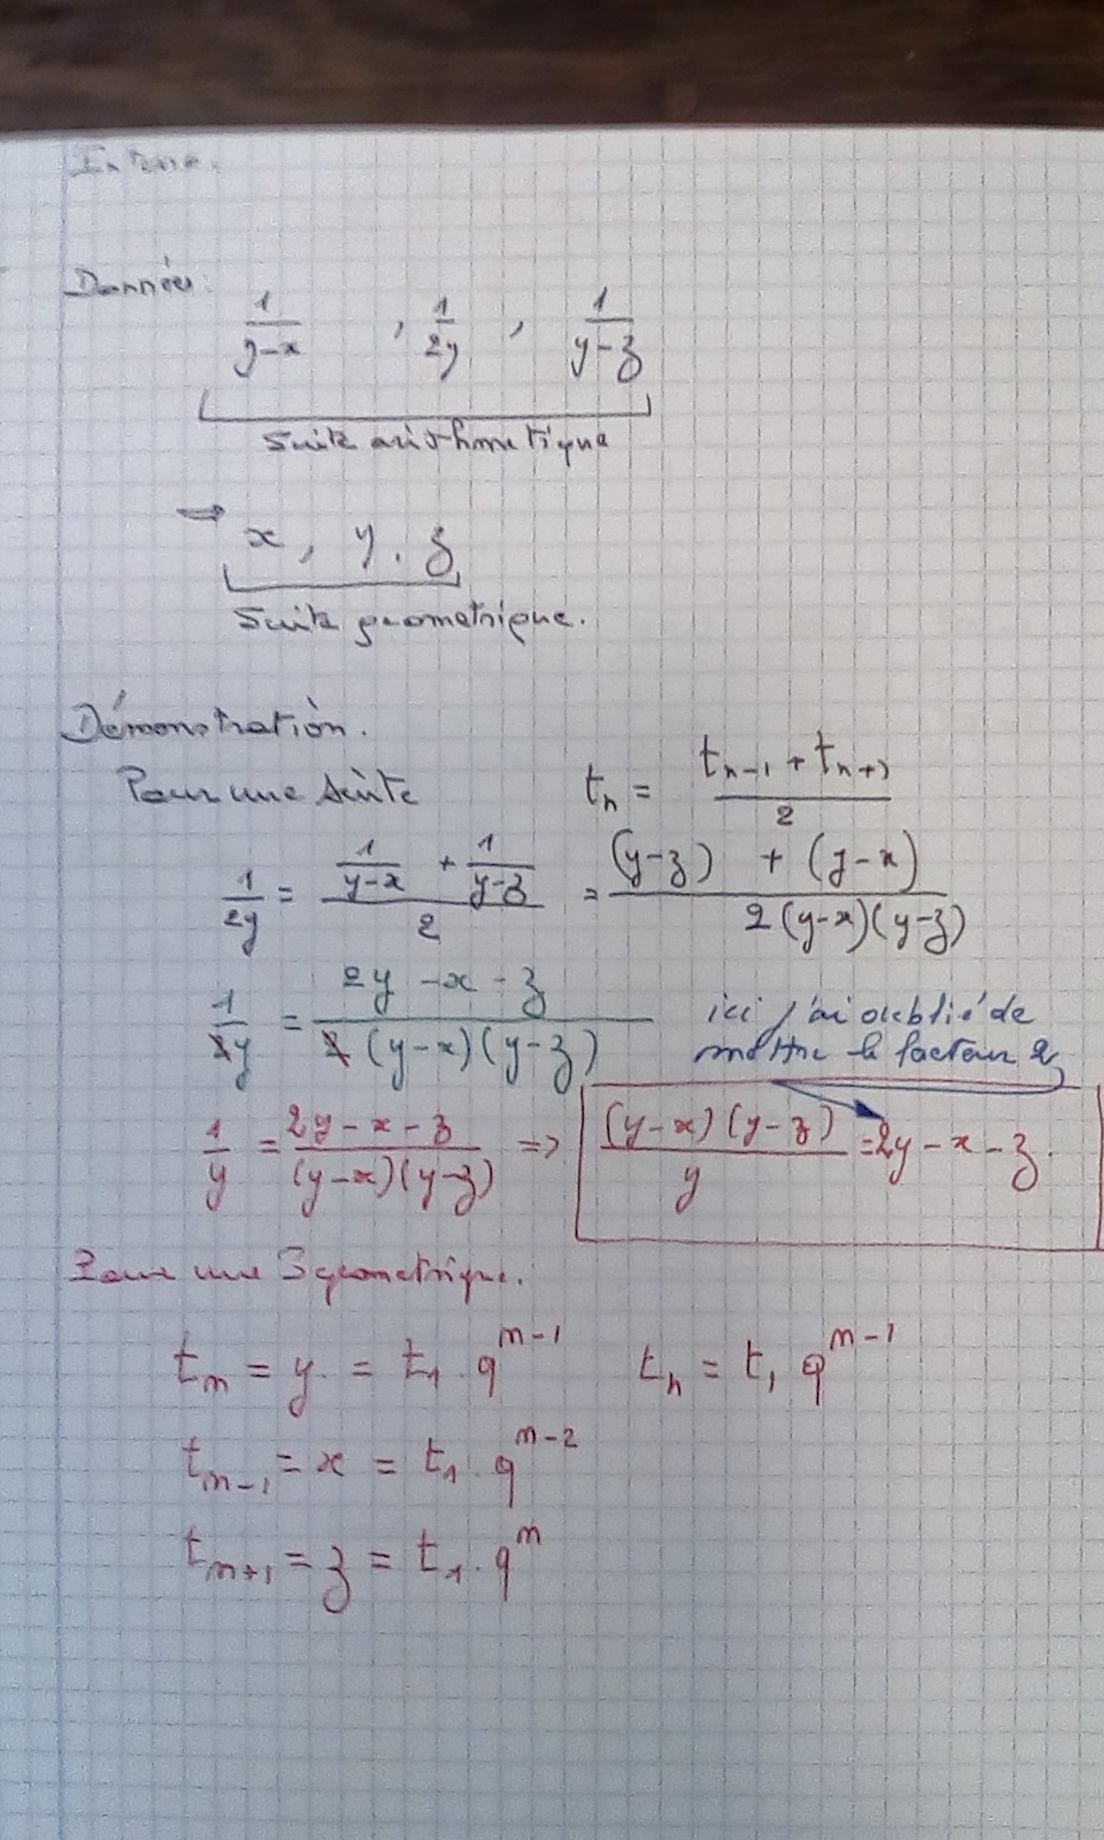 Données:
1/(y-x) , 1/(2y) , 1/(y-z)
suite arithmetique
⇒ x, y, z
suite geometrique.
Démonstration.
Pour une suite t_n = (t_{n-1} + t_{n+1})/2
1/(2y) = (1/(y-x) + 1/(y-z))/2 = ((y-z) + (y-x))/(2(y-x)(y-z))
1/(2y) = (2y-x-z)/(2(y-x)(y-z))
ici j'ai oublié de
mettre le facteur 2
1/y = (2y-x-z)/((y-x)(y-z)) => ((y-x)(y-z))/y = 2y-x-z.
Pour une S geometrique.
t_n = y = t_1 . q^{n-1} t_n = t_1 q^{n-1}
t_{n-1} = x = t_1 . q^{n-2}
t_{n+1} = z = t_1 . q^n